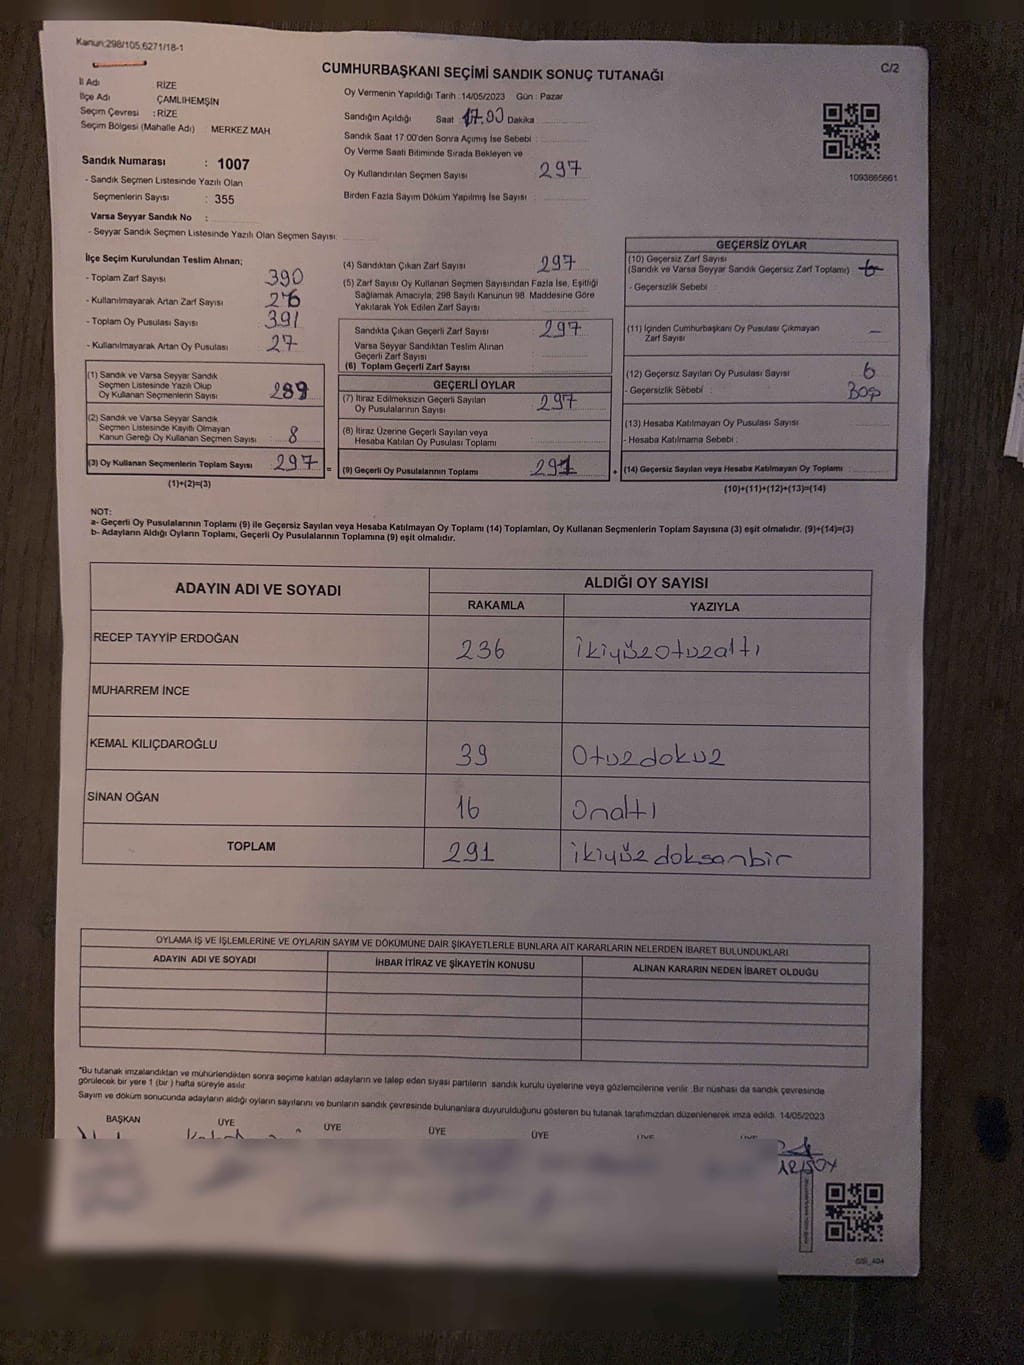 Kanun:298/105,6271/18-1
C/2
CUMHURBAŞKANI SEÇİMİ SANDIK SONUÇ TUTANAĞI
İl Adı RİZE
İlçe Adı ÇAMLIHEMŞİN
Seçim Çevresi : RİZE
Seçim Bölgesi (Mahalle Adı) : MERKEZ MAH.
Sandık Numarası : 1007
- Sandık Seçmen Listesinde Yazılı Olan
Seçmenlerin Sayısı : 355
Varsa Seyyar Sandık No :
- Seyyar Sandık Seçmen Listesinde Yazılı Olan Seçmen Sayısı:
Oy Vermenin Yapıldığı Tarih : 14/05/2023 Gün : Pazar
Sandığın Açıldığı Saat 17.00 Dakika
Sandık Saat 17.00'den Sonra Açımış İse Sebebi :
Oy Verme Saati Bitiminde Sırada Bekleyen ve
Oy Kullandırılan Seçmen Sayısı 297
Birden Fazla Sayım Döküm Yapılmış İse Sayısı :
1093865661
İlçe Seçim Kurulundan Teslim Alınan;
- Toplam Zarf Sayısı 390
- Kullanılmayarak Artan Zarf Sayısı 26
- Toplam Oy Pusulası Sayısı 391
- Kullanılmayarak Artan Oy Pusulası 27
(1) Sandık ve Varsa Seyyar Sandık
Seçmen Listesinde Yazılı Olup
Oy Kullanan Seçmenlerin Sayısı 289
(2) Sandık ve Varsa Seyyar Sandık
Seçmen Listesinde Kayıtlı Olmayan
Kanun Gereği Oy Kullanan Seçmen Sayısı 8
(3) Oy Kullanan Seçmenlerin Toplam Sayısı 297 =
(1)+(2)=(3)
(4) Sandıktan Çıkan Zarf Sayısı 297
(5) Zarf Sayısı Oy Kullanan Seçmen Sayısından Fazla İse, Eşitliği
Sağlamak Amacıyla; 298 Sayılı Kanunun 98. Maddesine Göre
Yakılarak Yok Edilen Zarf Sayısı
Sandıkta Çıkan Geçerli Zarf Sayısı 297
Varsa Seyyar Sandıktan Teslim Alınan
Geçerli Zarf Sayısı
(6) Toplam Geçerli Zarf Sayısı
GEÇERLİ OYLAR
(7) İtiraz Edilmeksizin Geçerli Sayılan
Oy Pusulalarının Sayısı 297
(8) İtiraz Üzerine Geçerli Sayılan veya
Hesaba Katılan Oy Pusulası Toplamı
(9) Geçerli Oy Pusulalarının Toplamı 291 +
GEÇERSİZ OYLAR
(10) Geçersiz Zarf Sayısı
(Sandık ve Varsa Seyyar Sandık Geçersiz Zarf Toplamı) 6
- Geçersizlik Sebebi :
(11) İçinden Cumhurbaşkanı Oy Pusulası Çıkmayan
Zarf Sayısı –
(12) Geçersiz Sayılan Oy Pusulası Sayısı 6
- Geçersizlik Sebebi : Boş
(13) Hesaba Katılmayan Oy Pusulası Sayısı
- Hesaba Katılmama Sebebi :
(14) Geçersiz Sayılan veya Hesaba Katılmayan Oy Toplamı
(10)+(11)+(12)+(13)=(14)
NOT:
a- Geçerli Oy Pusulalarının Toplamı (9) ile Geçersiz Sayılan veya Hesaba Katılmayan Oy Toplamı (14) Toplamları, Oy Kullanan Seçmenlerin Toplam Sayısına (3) eşit olmalıdır. (9)+(14)=(3)
b- Adayların Aldığı Oyların Toplamı, Geçerli Oy Pusulalarının Toplamına (9) eşit olmalıdır.
ADAYIN ADI VE SOYADI ALDIĞI OY SAYISI
RAKAMLA YAZIYLA
RECEP TAYYİP ERDOĞAN 236 ikiyüzotuzaltı
MUHARREM İNCE
KEMAL KILIÇDAROĞLU 39 Otuzdokuz
SİNAN OĞAN 16 Onaltı
TOPLAM 291 ikiyüzdoksanbir
OYLAMA İŞ VE İŞLEMLERİNE VE OYLARIN SAYIM VE DÖKÜMÜNE DAİR ŞİKAYETLERLE BUNLARA AİT KARARLARIN NELERDEN İBARET BULUNDUKLARI
ADAYIN ADI VE SOYADI İHBAR İTİRAZ VE ŞİKAYETİN KONUSU ALINAN KARARIN NEDEN İBARET OLDUĞU
*Bu tutanak imzalandıktan ve mühürlendikten sonra seçime katılan adayların ve talep eden siyasi partilerin sandık kurulu üyelerine veya gözlemcilerine verilir. Bir nüshası da sandık çevresinde
görülecek bir yere 1 (bir ) hafta süreyle asılır.
Sayım ve döküm sonucunda adayların aldığı oyların sayılarını ve bunların sandık çevresinde bulunanlara duyurulduğunu gösteren bu tutanak tarafımızdan düzenlenerek imza edildi. 14/05/2023
BAŞKAN ÜYE ÜYE ÜYE ÜYE ÜYE